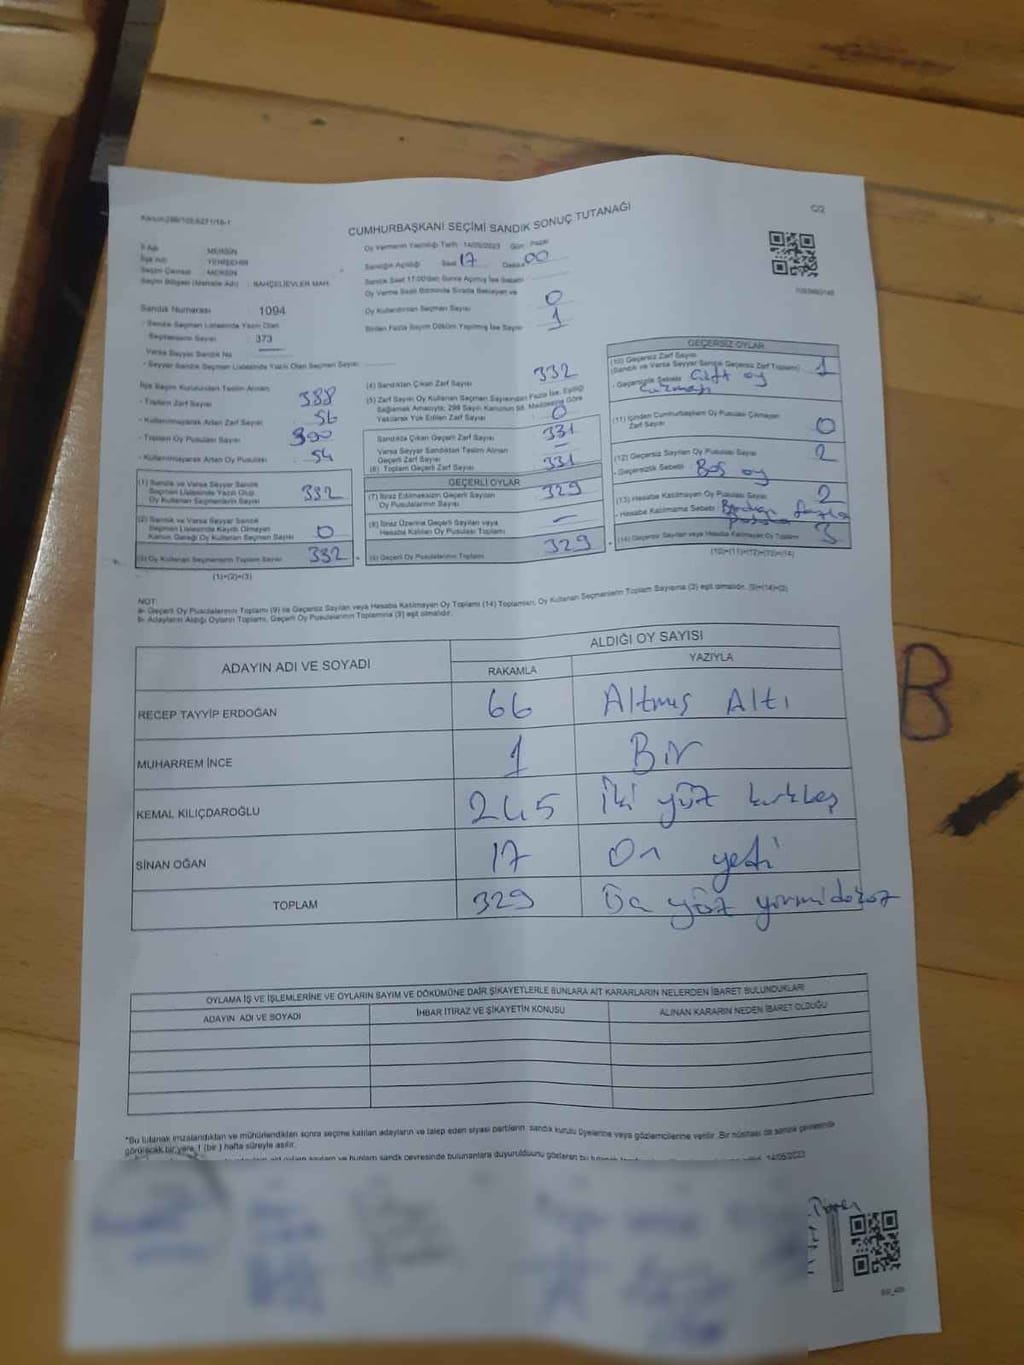 CUMHURBAŞKANI SEÇİMİ SANDIK SONUÇ TUTANAĞI
C/2
İl Adı MERSİN
İlçe Adı YENİŞEHİR
Seçim Çevresi MERSİN
Seçim Bölgesi (Mahalle Adı) : BAHÇELİEVLER MAH.
Oy Vermenin Yapıldığı Tarih : 14/05/2023 Gün : Pazar
Sandığın Açıldığı Saat 17 Dakika 00
Sandık Saat 17:00'dan Sonra Açılmış İse Sebebi
Oy Verme Saati Bitiminde Sırada Bekleyen ve
Oy Kullandırılan Seçmen Sayısı 0
Birden Fazla Sayım Döküm Yapılmış İse Sayısı 1
Sandık Numarası 1094
- Sandık Seçmen Listesinde Yazılı Olan
Seçmenlerin Sayısı 373
Varsa Seyyar Sandık No
- Seyyar Sandık Seçmen Listesinde Yazılı Olan Seçmen Sayısı
İlçe Seçim Kurulundan Teslim Alınan
- Toplam Zarf Sayısı 388
- Kullanılmayarak Artan Zarf Sayısı 56
- Toplam Oy Pusulası Sayısı
- Kullanılmayarak Artan Oy Pusulası 54
(1) Sandık ve Varsa Seyyar Sandık
Seçmen Listesinde Yazılı Olup
Oy Kullanan Seçmenlerin Sayısı 332
(2) Sandık ve Varsa Seyyar Sandık
Seçmen Listesinde Kayıtlı Olmayan
Kanun Gereği Oy Kullanan Seçmen Sayısı 0
(3) Oy Kullanan Seçmenlerin Toplam Sayısı 332
(1)+(2)=(3)
(4) Sandıktan Çıkan Zarf Sayısı 332
(5) Zarf Sayısı Oy Kullanan Seçmen Sayısından Fazla İse, Eşitliği
Sağlamak Amacıyla; 298 Sayılı Kanunun 98. Maddesine Göre
Yakılarak Yok Edilen Zarf Sayısı 0
Sandıkta Çıkan Geçerli Zarf Sayısı 331
Varsa Seyyar Sandıktan Teslim Alınan
Geçerli Zarf Sayısı –
(6) Toplam Geçerli Zarf Sayısı 331
GEÇERLİ OYLAR
(7) İtiraz Edilmeksizin Geçerli Sayılan
Oy Pusulalarının Toplamı 329
(8) İtiraz Üzerine Geçerli Sayılan veya
Hesaba Katılan Oy Pusulası Toplamı –
(9) Geçerli Oy Pusulalarının Toplamı 329
GEÇERSİZ OYLAR
(10) Geçersiz Zarf Sayısı
(Sandık ve Varsa Seyyar Sandık Geçersiz Zarf Toplamı) 1
- Geçersizlik Sebebi : Çift oy
(11) İçinden Cumhurbaşkanı Oy Pusulası Çıkmayan
Zarf Sayısı 0
(12) Geçersiz Sayılan Oy Pusulası Sayısı 2
- Geçersizlik Sebebi : Boş oy
(13) Hesaba Katılmayan Oy Pusulası Sayısı 2
- Hesaba Katılmama Sebebi : Birden fazla
pusula
(14) Geçersiz Sayılan veya Hesaba Katılmayan Oy Toplamı 3
(10)+(11)+(12)+(13)=(14)
NOT:
a- Geçerli Oy Pusulalarının Toplamı (9) ile Geçersiz Sayılan veya Hesaba Katılmayan Oy Toplamı (14) Toplamları, Oy Kullanan Seçmenlerin Toplam Sayısına (3) eşit olmalıdır. (9)+(14)=(3)
b- Adayların Aldığı Oyların Toplamı, Geçerli Oy Pusulalarının Toplamına (9) eşit olmalıdır.
ADAYIN ADI VE SOYADI ALDIĞI OY SAYISI
RAKAMLA YAZIYLA
RECEP TAYYİP ERDOĞAN 66 Altmış Altı
MUHARREM İNCE 1 Bir
KEMAL KILIÇDAROĞLU 245 İki yüz kırkbeş
SİNAN OĞAN 17 On yedi
TOPLAM 329 Üç yüz yirmidokuz
OYLAMA İŞ VE İŞLEMLERİNE VE OYLARIN SAYIM VE DÖKÜMÜNE DAİR ŞİKAYETLERLE BUNLARA AİT KARARLARIN NELERDEN İBARET BULUNDUKLARI
ADAYIN ADI VE SOYADI İHBAR İTİRAZ VE ŞİKAYETİN KONUSU ALINAN KARARIN NEDEN İBARET OLDUĞU
*Bu tutanak imzalandıktan ve mühürlendikten sonra seçime katılan adayların ve talep eden siyasi partilerin sandık kurulu üyelerine veya gözlemcilerine verilir. Bir nüshası da sandık çevresinde
görülecek bir yere 1 (bir) hafta süreyle asılır.
14/05/2023
B